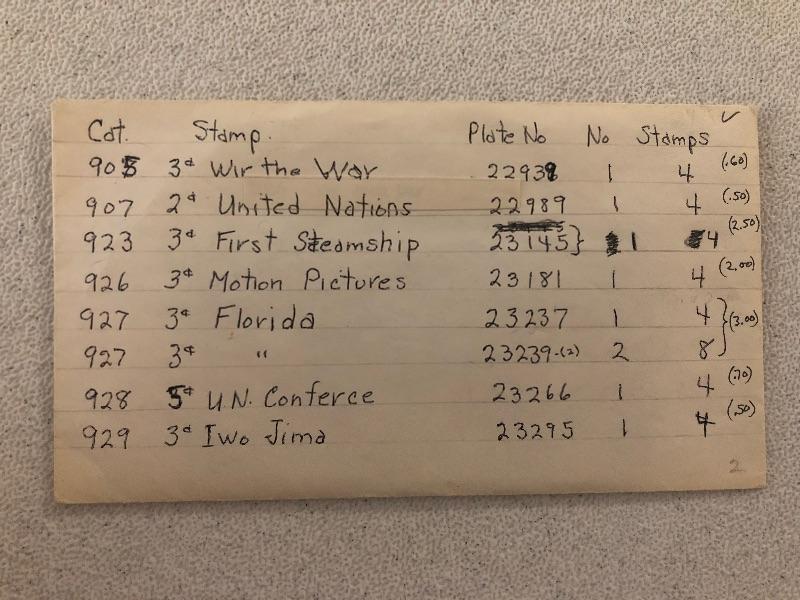 Cat. Stamp. Plate No No Stamps ✓
905 3¢ Wir the War 22938 1 4 (.60)
907 2¢ United Nations 22989 1 4 (.50)
923 3¢ First Steamship 23145} 1 4 (2.50)
926 3¢ Motion Pictures 23181 1 4 (2.00)
927 3¢ Florida 23237 1 4 } (3.00)
927 3¢ " 23239-(2) 2 8
928 5¢ U.N. Conferce 23266 1 4 (.70)
929 3¢ Iwo Jima 23295 1 4 (.50)
2